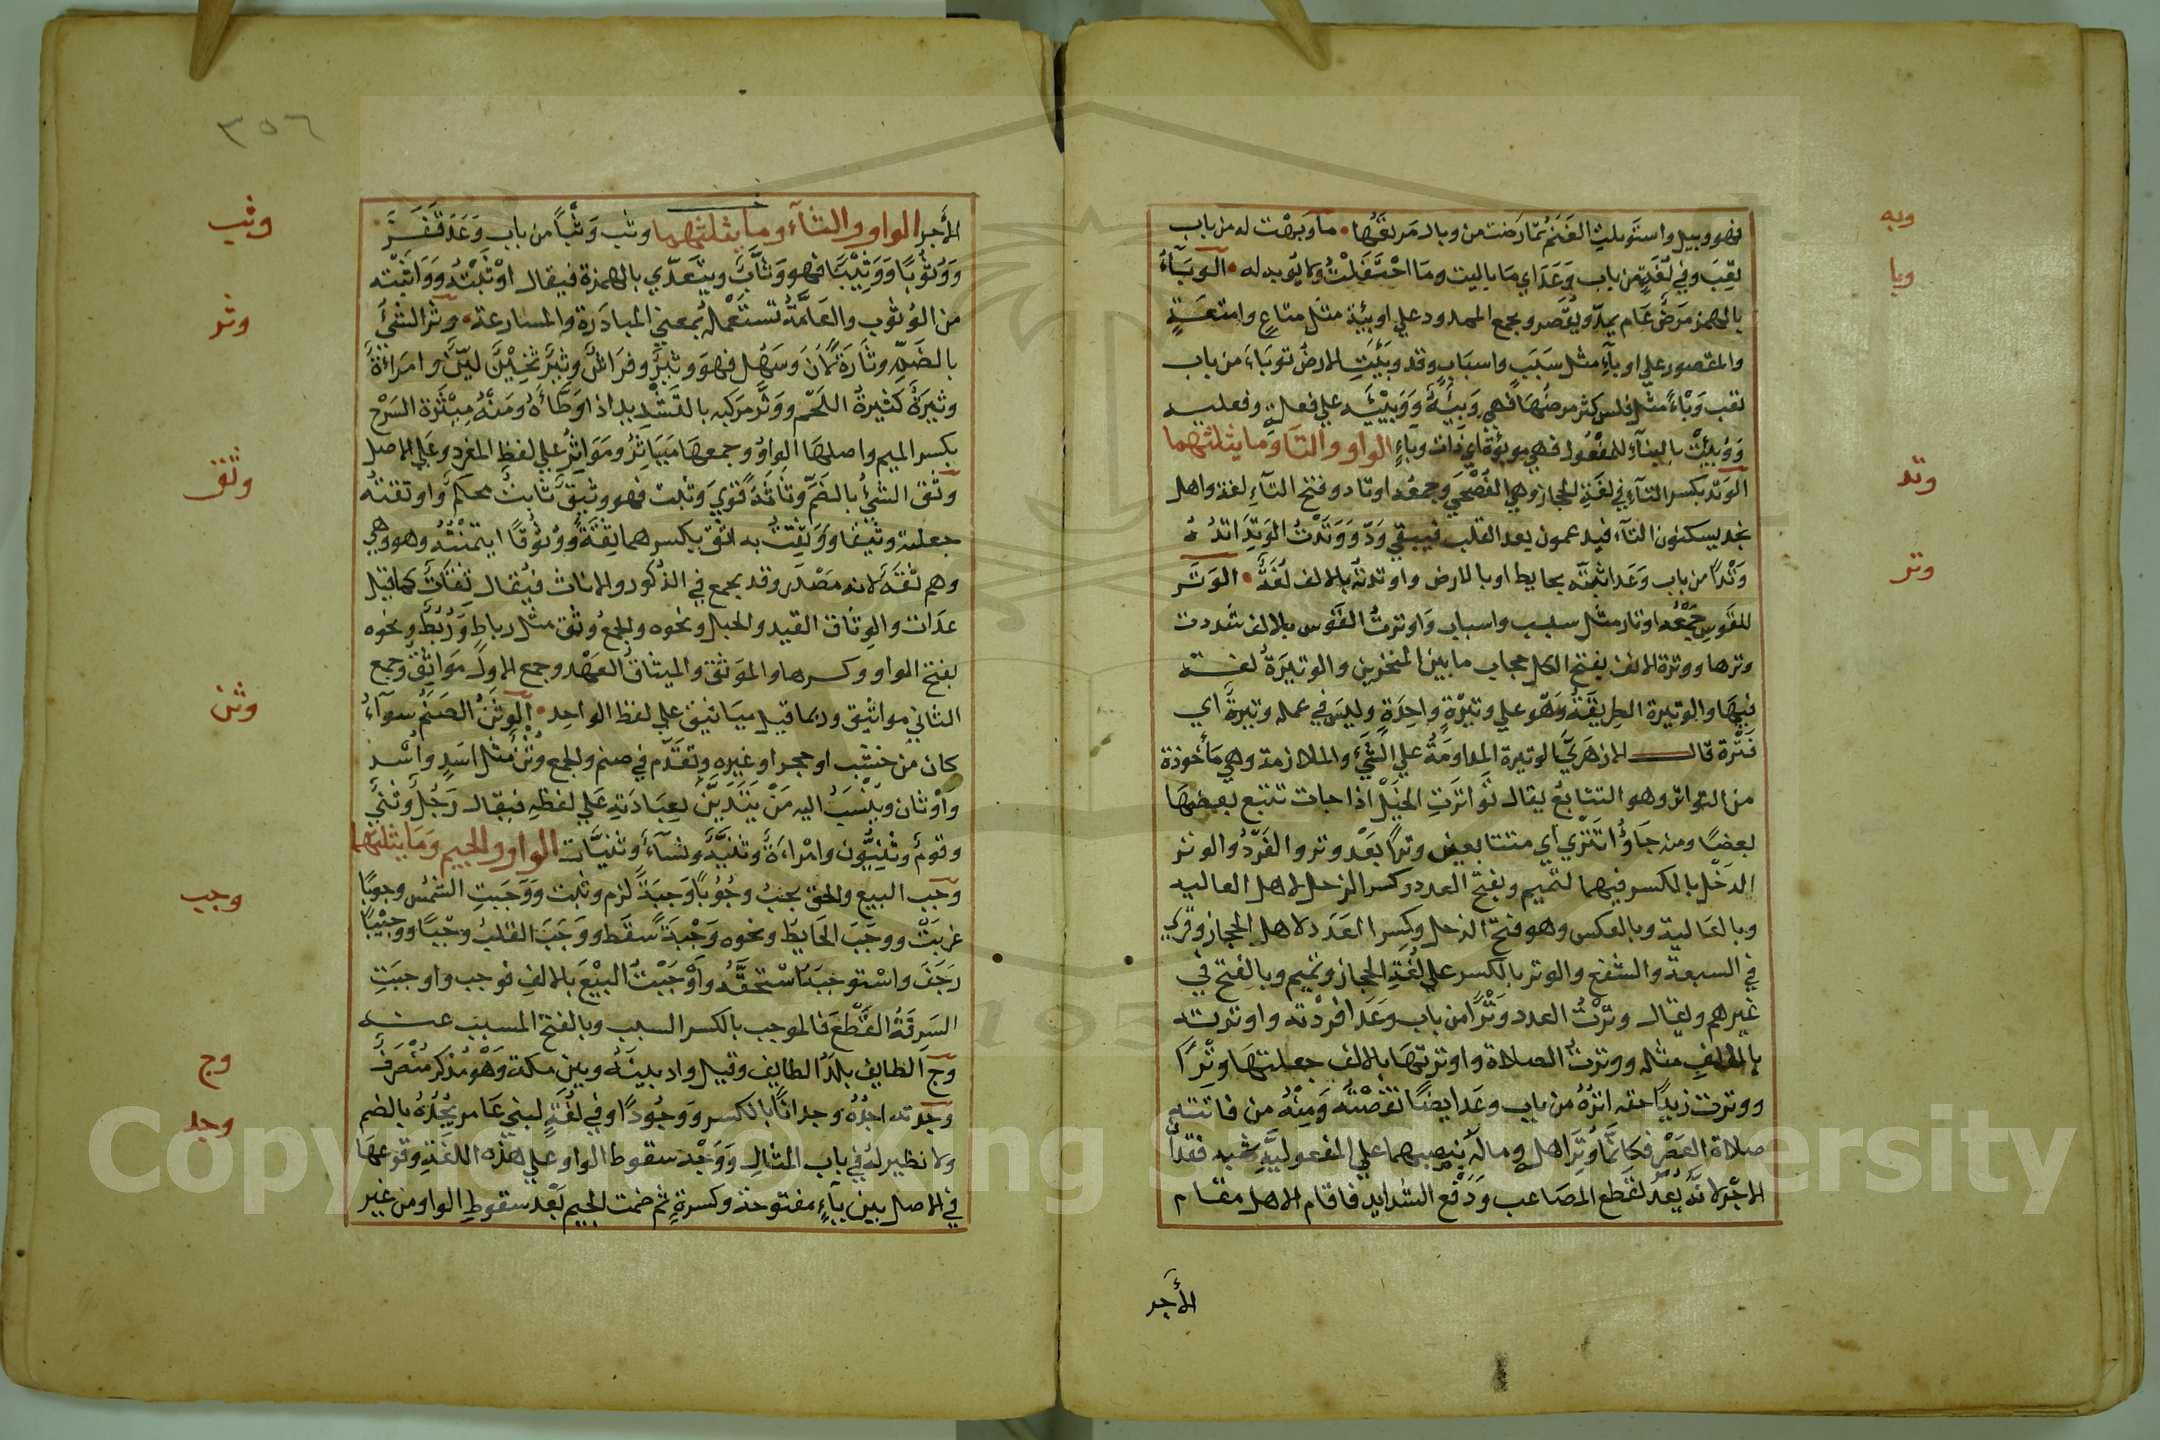 وبه
وبا
وتد
وتر
فهو وبيل واستوبلت الغنم تمارضت من وبال مرتعها ما وبهت له من باب
تعب وفي لغة من باب وعد اي ما باليت وما احتفلت ولا يوبه له الوباء
بالهمز مرض عام يمد ويقصر ويجمع الممدود علي اوبئة مثل متاع وامتعة
والمقصور علي اوباء مثل سبب واسباب وقد وبئت الارض توباء من باب
تعب وباء مثل فلس كثر مرضها فهي وبئة ووبيئة علي فعلة وفعيلة
ووبئت بالبناء للمفعول فهي موبوة اي ذات وباء الواو والتا وما يثلثهما
الوتد بكسر التاء في لغة الحجاز وهي الفصحي وجمعه اوتاد وفتح التاء لغة واهل
نجد يسكنون التاء فيدغمون بعد القلب فيبقي ود ووتدت الوتد اتده
وتدا من باب وعد اثبته بحايط او بالارض واوتدته بالالف لغة الوتر
للقوس جمعه اوتار مثل سبب واسباب واوترت القوس بالالف شددت
وترها ووترة الانف بفتح الكل حجاب ما بين المنخرين والوتيرة لغة
فيها والوتيرة الطريقة وهو علي وتيرة واحدة وليس في عمله وتيرة اي
فترة قال الازهري الوتيرة المداومة علي الشيء والملازمة وهي مأخوذة
من التواتر وهو التتابع يقال تواترت الخيل اذا جات تتبع بعضها
بعضا ومنه جاؤا تتري اي متتابعين وترا بعد وتر والفرد والوتر
الدخل بالكسر فيهما لتميم وبفتح العدد وكسر الزحل لاهل العاليه
وبالعالية وبالعكس وهو فتح الذحل وكسر العدد لاهل الحجاز وقري
في السبعة والشفع والوتر بالكسر علي لغة الحجاز وتميم وبالفتح في
غيرهم ويقال وترت العدد وترا من باب وعد افردته واوترته
بالالف مثله ووترت الصلاة واوترتها بالالف جعلتها وترا
ووترت زيدا حقه اتره من باب وعد ايضا نقصته ومنه من فاتته
صلاة العصر فكانما وتر اهله وماله بنصبهما علي المفعولية شبه فقدان
الاجر لانه يعد لقطع المصاعب ودفع الشدايد فاقام الاهل مقام
الأجر
٣٥٦
وثب
وثر
وثق
وثن
وجب
وج
وجد
الأجر الواو والثاء وما يثلثهما وثب وثبا من باب وعد قفز
ووثوبا ووثيبا فهو وثاب ويتعدي بالهمزة فيقال اوثبته وواثبته
من الوثوب والعامة تستعمله بمعني المبادرة والمسارعة وثر الشئ
بالضم وثارة لان وسهل فهو وثير وفراش وثير ثخين لين وامراءة
وثيرة كثيرة اللحم ووثر مركبه بالتشديد اذا وطأه ومنه ميثرة السرج
بكسر الميم واصلها الواو وجمعها مياثر ومواثر علي لفظ المفرد وعلي الاصل
وثق الشئ بالضم وثاقة قوي وثبت فهو وثيق ثابث محكم واوثقته
جعلته وثيقا ووثقت به اثق بكسرهما ثقة ووثوقا ايتمنته وهو وهي
وهم ثقة لانه مصدر وقد يجمع في الذكور والاناث فيقال ثقات كما قيل
عدات والوثاق القيد والحبل ونحوه والجمع وثق مثل رباط وربط ونحوه
بفتح الواو وكسرها والموثق والميثاق العهد وجمع الاول مواثق وجمع
الثاني مواثيق وربما قيل مياثيق علي لفظ الواحد الوثن الصنم سواء
كان من خشب او حجر او غيره وتقدم في صنم والجمع وثن مثل اسد واسد
واوثان وينسب اليه من يتدين بعبادته علي لفظه فيقال رجل وثني
وقوم وثنيون وامراءة وثنية ونساء وثنيات الواو والجيم وما يثلثهما
وجب البيع والحق يجب وجوبا وجبة لزم وثبت ووجبت الشمس وجوبا
غربت ووجب الحايط ونحوه وجبة سقط ووجب القلب وجبا ووجيبا
رجف واستوجبه استحقه واوجبت البيع بالالف فوجب واوجبت
السرقة القطع فالموجب بالكسر السبب وبالفتح المسبب عنه
وج الطايف بلد الطايف وقيل واد بينه وبين مكة وهو مذكر منصرف
وجدته اجده وجدانا بالكسر ووجودا وفي لغة لبني عامر يجده بالضم
ولا نظير له في باب المثال ووجه سقوط الواو علي هذه اللغة وقوعها
في الاصل بين ياء مفتوحة وكسرة ثم ضمت الجيم بعد سقوط الواو من غير
Copyright © King Saud University